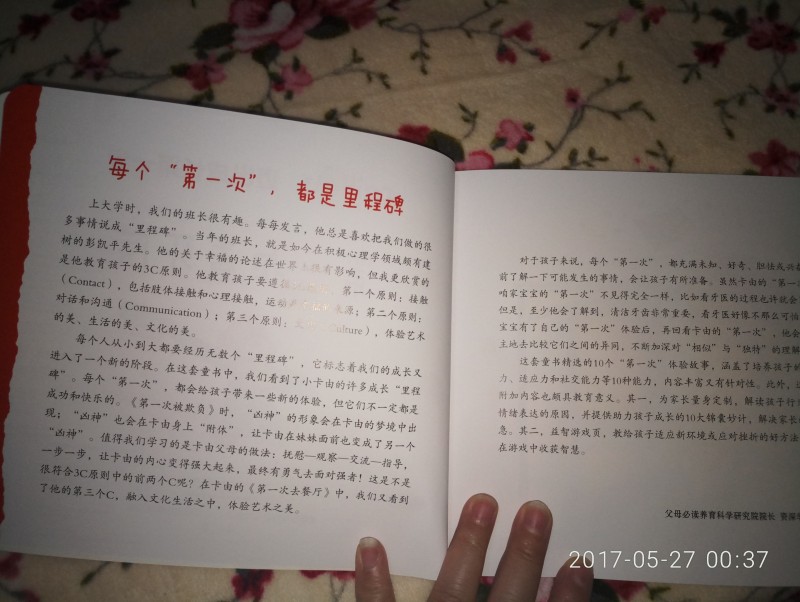 每个“第一次”，都是里程碑
上大学时，我们的班长很有趣。每每发言，他总是喜欢把我们做的很
多事情说成“里程碑”。当年的班长，就是如今在积极心理学领域颇有建
树的彭凯平先生。他的关于幸福的论述在世界上很有影响，但我更欣赏的
是他教育孩子的3C原则。他教育孩子要遵 第一个原则：接触
(Contact)，包括肢体接触和心理接触，运动 来源；第二个原则：
对话和沟通（Communication）；第三个原则： Culture），体验艺术
的美、生活的美、文化的美。
每个人从小到大都要经历无数个“里程碑”，它标志着我们的成长又
进入了一个新的阶段。在这套童书中，我们看到了小卡由的许多成长“里程
碑”。每个“第一次”，都会给孩子带来一些新的体验，但它们不一定都是
成功和快乐的。《第一次被欺负》时，“凶神”的形象会在卡由的梦境中出
现；“凶神”也会在卡由身上“附体”，让卡由在妹妹面前也变成了另一个
“凶神”。值得我们学习的是卡由父母的做法：抚慰—观察—交流—指导，
一步一步，让卡由的内心变得强大起来，最终有勇气去面对强者！这是不是
很符合3C原则中的前两个C呢？在卡由的《第一次去餐厅》中，我们又看到
了他的第三个C，融入文化生活之中，体验艺术之美。
对于孩子来说，每个“第一次”，都充满未知、好奇、胆怯或兴
前了解一下可能发生的事情，会让孩子有所准备。虽然卡由的“第一
咱家宝宝的“第一次”不见得完全一样，比如看牙医的过程也许就会
但是，至少他会了解到，清洁牙齿非常重要，看牙医好像不那么可怕
宝宝有了自己的“第一次”体验后，再回看卡由的“第一次”，他会
主地去比较它们之间的异同，不断加深对“相似”与“独特”的理解
这套童书精选的10个“第一次”体验故事，涵盖了培养孩子的
力、适应力和社交能力等10种能力，内容丰富又有针对性。此外，
附加内容也颇具教育意义。其一，为家长量身定制，解读孩子行
情绪表达的原因，并提供助力孩子成长的10大锦囊妙计，解决家长
急。其二，益智游戏页，教给孩子适应新环境或应对挫折的好方法
在游戏中收获智慧。
父母必读养育科学研究院院长
2017-05-27 00:37